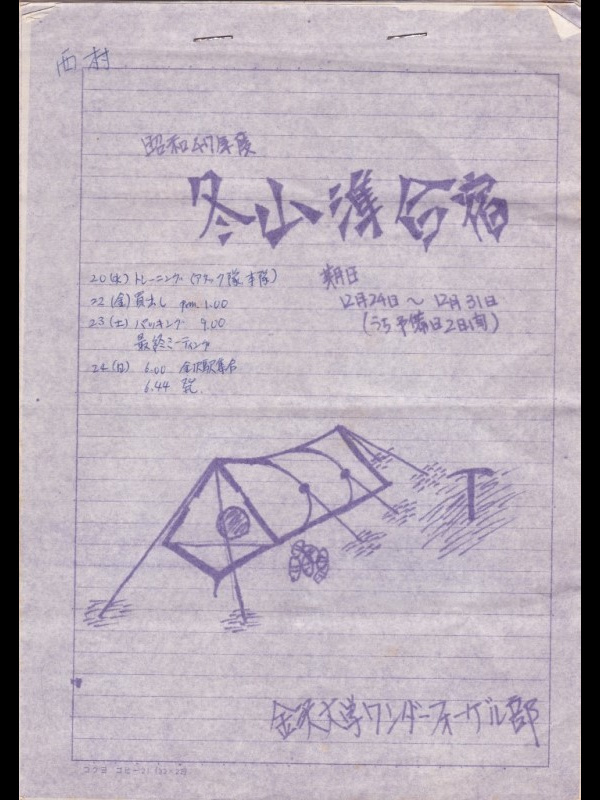 西村
昭和47年度
冬山準合宿
期日
12月24日～12月31日
(うち予備日2日間)
20(水) トレーニング (アタック隊、本隊)
22(金) 買出し pm 1.00
23(土) パッキング 9.00
最終ミーティング
24(日) 6.00 金沢駅集合
6.44 発
金沢大学ワンダーフォーゲル部
コクヨ コピー